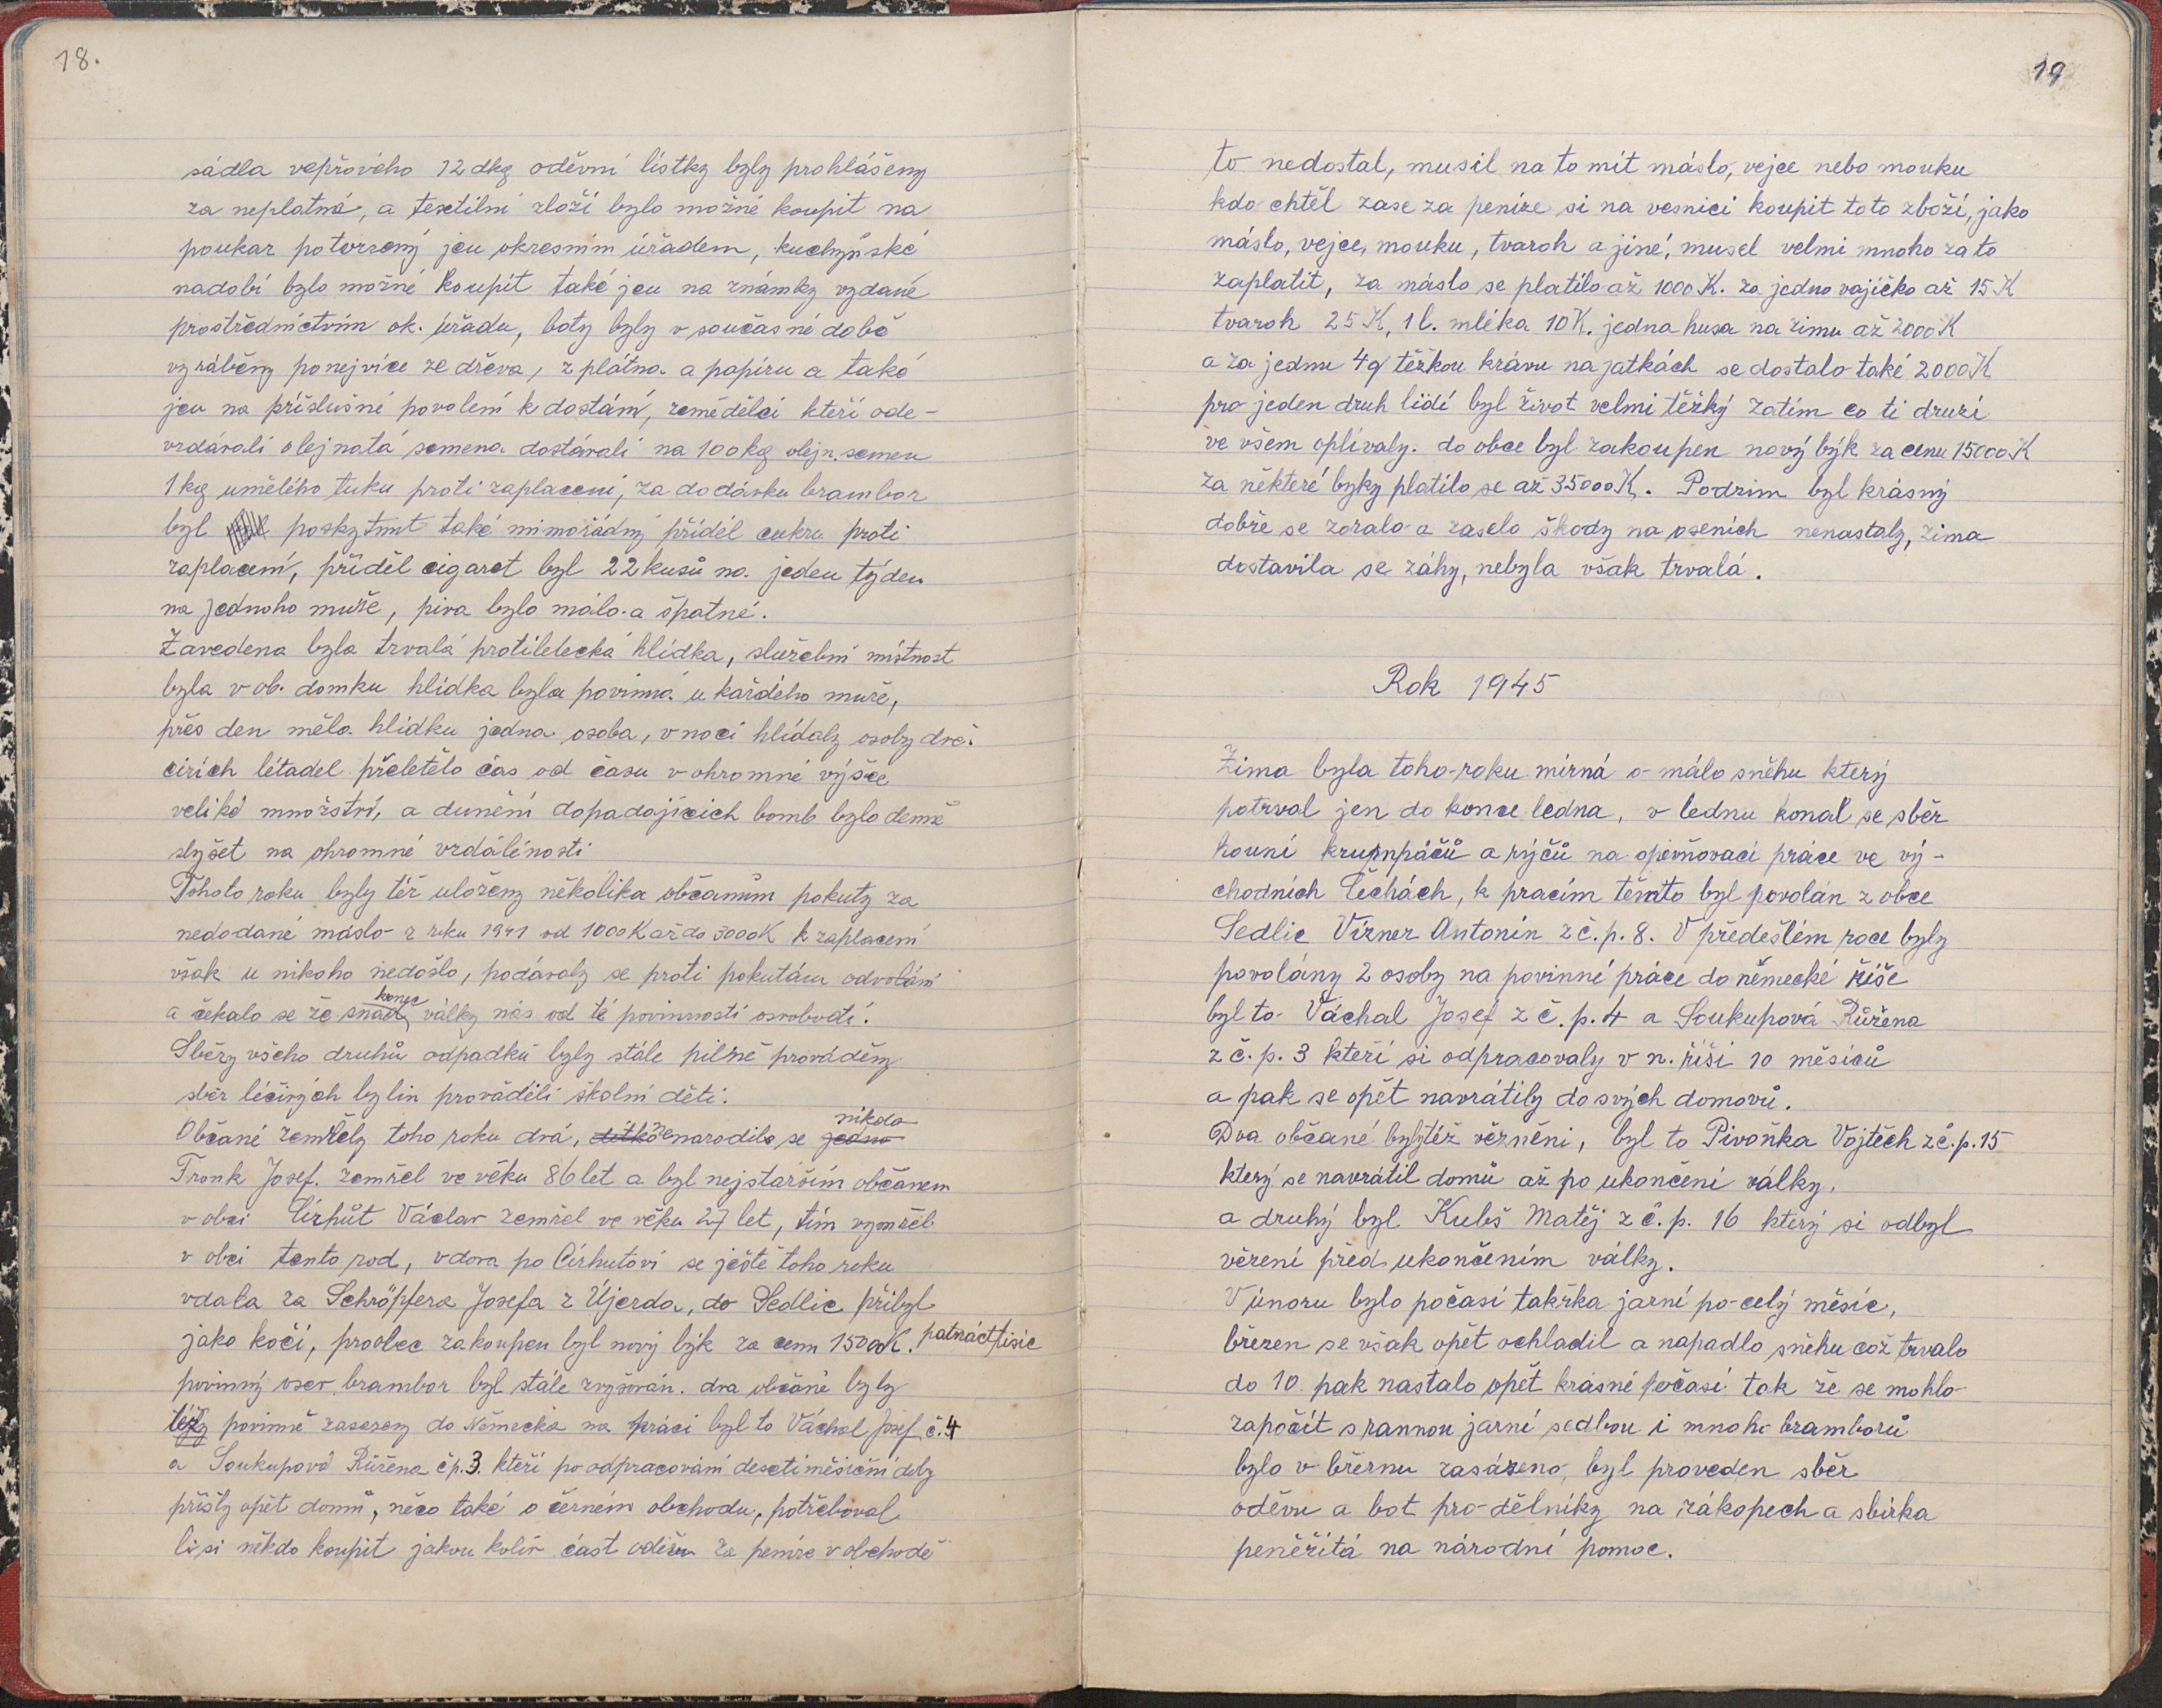 18.
sádla vepřového 12 dkg oděvní lístky byly prohlášeny
za neplatná, a textilní zloží bylo možné koupit na
poukaz potvrzený jen okresním úřadem, kuchyňské
nadobí bylo možné koupit také jen na známky vydané
prostřednictvím ok. úřadu, boty byly v současné době
vyráběny ponejvíce ze dřeva, z plátna a papíru a také
jen na příslušné povolení k dostání, zemědělci kteří ode-
vzdávali olejnatá semena dostávali na 100 kg olejn. semen
1 kg umělého tuku proti zaplacení, za dodávku brambor
byl poskytnut také mimořádný příděl cukru proti
zaplacení, příděl cigaret byl 22 kusů na jeden týden
na jednoho muže, piva bylo málo a špatné.
Zavedena byla trvalá protiletecká hlídka, služební místnost
byla v ob. domku hlídka byla povinná u každého muže,
přes den měla hlídku jedna osoba, v noci hlídaly osoby dvě.
cizích létadel přeletělo čas od času v ohromné výšce
veliké množství, a dunění dopadajících bomb bylo denně
slyšet na ohromné vzdálenosti
Tohoto roku byly též uloženy několika občanům pokuty za
nedodané máslo z roku 1941 od 1000 K až do 3000 K k zaplacení
však u nikoho nedošlo, podávaly se proti pokutám odvolání
a čekalo se že snad konec války nás od té povinnosti osvobodí.
Sběry všeho druhů odpadků byly stále pilně prováděny
sběr léčivých bylin prováděli školní děti.
Občané zemřely toho roku dvá, dítko nenarodilo se jedno nikdo
Tronk Josef. zemřel ve věku 86 let a byl nejstarším občanem
v obci Cirhůt Václav zemřel ve věku 27 let, tím vymřel
v obci tento rod, vdova po Cirhutovi se ještě toho roku
vdala za Schröpfera Josefa z Újezda, do Sedlic přibyl
jako kočí, pro obec zakoupen byl nový býk za cenu 15000K. patnáct tisíc
povinný osev brambor byl stále zvyšován. dva občané byly
též povinně zasazeny do Německa na práci byl to Váchal Josef č.4
a Soukupová Růžena čp.3. kteří po odpracování desetiměsíční doby
přišly opět domů, něco také o černém obchodu, potřeboval
li si někdo koupit jakou koliv část oděvu za peníze v obchodě
19
to nedostal, musil na to mít máslo, vejce nebo mouku
kdo chtěl zase za peníze si na vesnici koupit toto zboží, jako
máslo, vejce, mouku, tvaroh a jiné, musel velmi mnoho za to
zaplatit, za máslo se platilo až 1000 K. za jedno vajíčko až 15 K
tvaroh 25 K, 1 l. mléka 10 K. jedna husa na zimu až 2000 K
a za jednu 4 q těžkou krávu na jatkách se dostalo také 2000 K
pro jeden druh lidí byl život velmi těžký zatím co ti druzí
ve všem oplívaly. do obce byl zakoupen nový býk za cenu 15000 K
za některé byky platilo se až 35000 K. Podzim byl krásný
dobře se zoralo a zaselo škody na oseních nenastaly, zima
dostavila se záhy, nebyla však trvalá.
Rok 1945
Zima byla toho roku mírná o málo sněhu který
potrval jen do konce ledna, v lednu konal se sběr
houní krumpáčů a rýčů na opevňovací práce ve vý-
chodních Čechách, k pracím těmto byl povolán z obce
Sedlic Vizner Antonín z č.p. 8. V předešlém roce byly
povolány 2 osoby na povinné práce do německé říše
byl to Váchal Josef z č.p. 4 a Soukupová Růžena
z č.p. 3 kteří si odpracovaly v n. říši 10 měsíců
a pak se opět navrátily do svých domovů.
Dva občané byly též vězněni, byl to Pivoňka Vojtěch z č.p. 15
který se navrátil domů až po ukončení války,
a druhý byl Kubš Matěj z č.p. 16 který si odbyl
vězení před ukončením války.
V únoru bylo počasí takřka jarní po celý měsíc,
březen se však opět ochladil a napadlo sněhu což trvalo
do 10. pak nastalo opět krásné počasí tak že se mohlo
započít s rannou jarní sedbou i mnoho bramborů
bylo v březnu zasázeno, byl proveden sběr
oděvu a bot pro dělníky na zákopech a sbírka
peněžitá na národní pomoc.